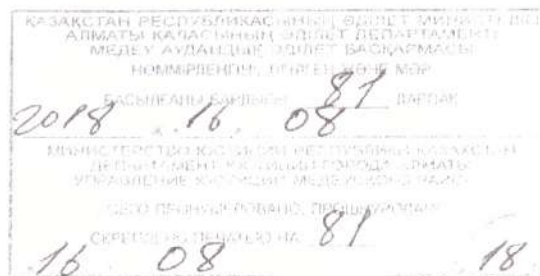 ҚАЗАҚСТАН РЕСПУБЛИКАСЫНЫҢ ӘДІЛЕТ МИНИСТРЛІГІ
АЛМАТЫ ҚАЛАСЫНЫҢ ӘДІЛЕТ ДЕПАРТАМЕНТІ
МЕДЕУ АУДАНДЫҚ ӘДІЛЕТ БАСҚАРМАСЫ
НӨМІРЛЕНГЕН, ТІГІЛГЕН ЖӘНЕ МӨР
БАСЫЛҒАНЫ БАРЛЫҒЫ 81 ПАРАҚ
2018 . 16. 08
МИНИСТЕРСТВО ЮСТИЦИИ РЕСПУБЛИКИ КАЗАХСТАН
ДЕПАРТАМЕНТ ЮСТИЦИИ ГОРОДА АЛМАТЫ
УПРАВЛЕНИЕ ЮСТИЦИИ МЕДЕУСКОГО РАЙОНА
ВСЕГО ПРОНУМЕРОВАНО, ПРОШНУРОВАНО
СКРЕПЛЕНО ПЕЧАТЬЮ НА 81
16 . 08 . 18.